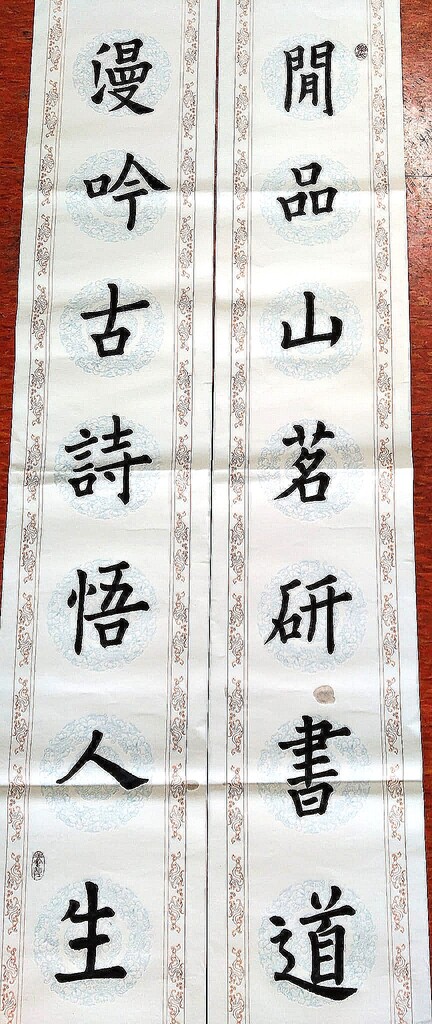 閒品山茗研書道
漫吟古詩悟人生